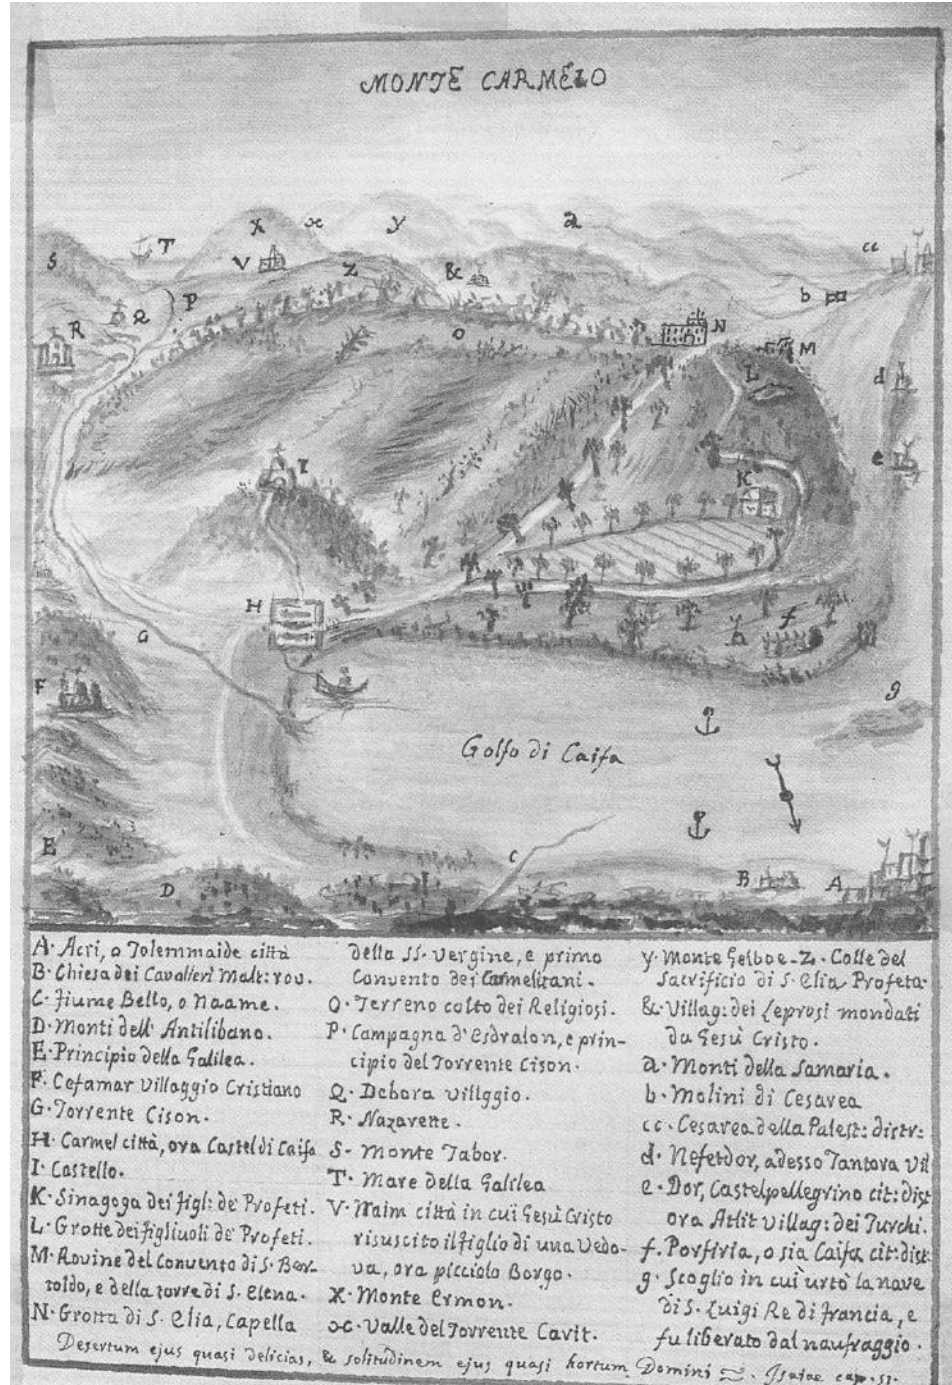 MONTE CARMELO
X
x
y
a
cc
S
T
V
Z
&
b
P
Q
R
O
N
M
L
d
e
I
K
H
f
G
F
g
Golfo di Caifa
E
D
C
B
A
A. Acri, o Tolemmaide città
B. Chiesa dei Cavalieri Malt: rov.
C. Fiume Bello, o Naame.
D. Monti dell' Antilibano.
E. Principio della Galilea.
F. Cefamar Villaggio Cristiano
G. Torrente Cison.
H. Carmel città, ora Castel di Caifa
I. Castello.
K. Sinagoga dei figli: de' Profeti.
L. Grotte dei figliuoli de' Profeti.
M. Rovine del Convento di S. Ber-
toldo, e della torre di S. Elena.
N. Grotta di S. Elia, Capella
della SS. Vergine, e primo
Convento dei Carmelitani.
O. Terreno colto dei Religiosi.
P. Campagna d'Esdralon, e prin-
cipio del Torrente Cison.
Q. Debora villggio.
R. Nazarette.
S. Monte Tabor.
T. Mare della Galilea
V. Naim città in cui Gesù Cristo
risuscito il figlio di una Vedo-
va, ora picciolo Borgo.
X. Monte Ermon.
x. Valle del Torrente Cavit.
y. Monte Gelboe - Z. Colle del
Sacrificio di S. Elia Profeta.
&. Villag: dei Leprosi mondati
da Gesù Cristo.
a. Monti della Samaria.
b. Molini di Cesarea
cc. Cesarea della Palest: distr:
d. Nefetdor, adesso Tantora Vil
e. Dor, Castelpellegrino cit: dist
ora Atlit villag: dei Turchi.
f. Porfiria, o sia Caifa cit: dist:
g. Scoglio in cui urtò la nave
di S. Luigi Re di Francia, e
fu liberato dal naufraggio.
Desertum ejus quasi delicias, & solitudinem ejus quasi hortum Domini. Isaiae cap. 51.